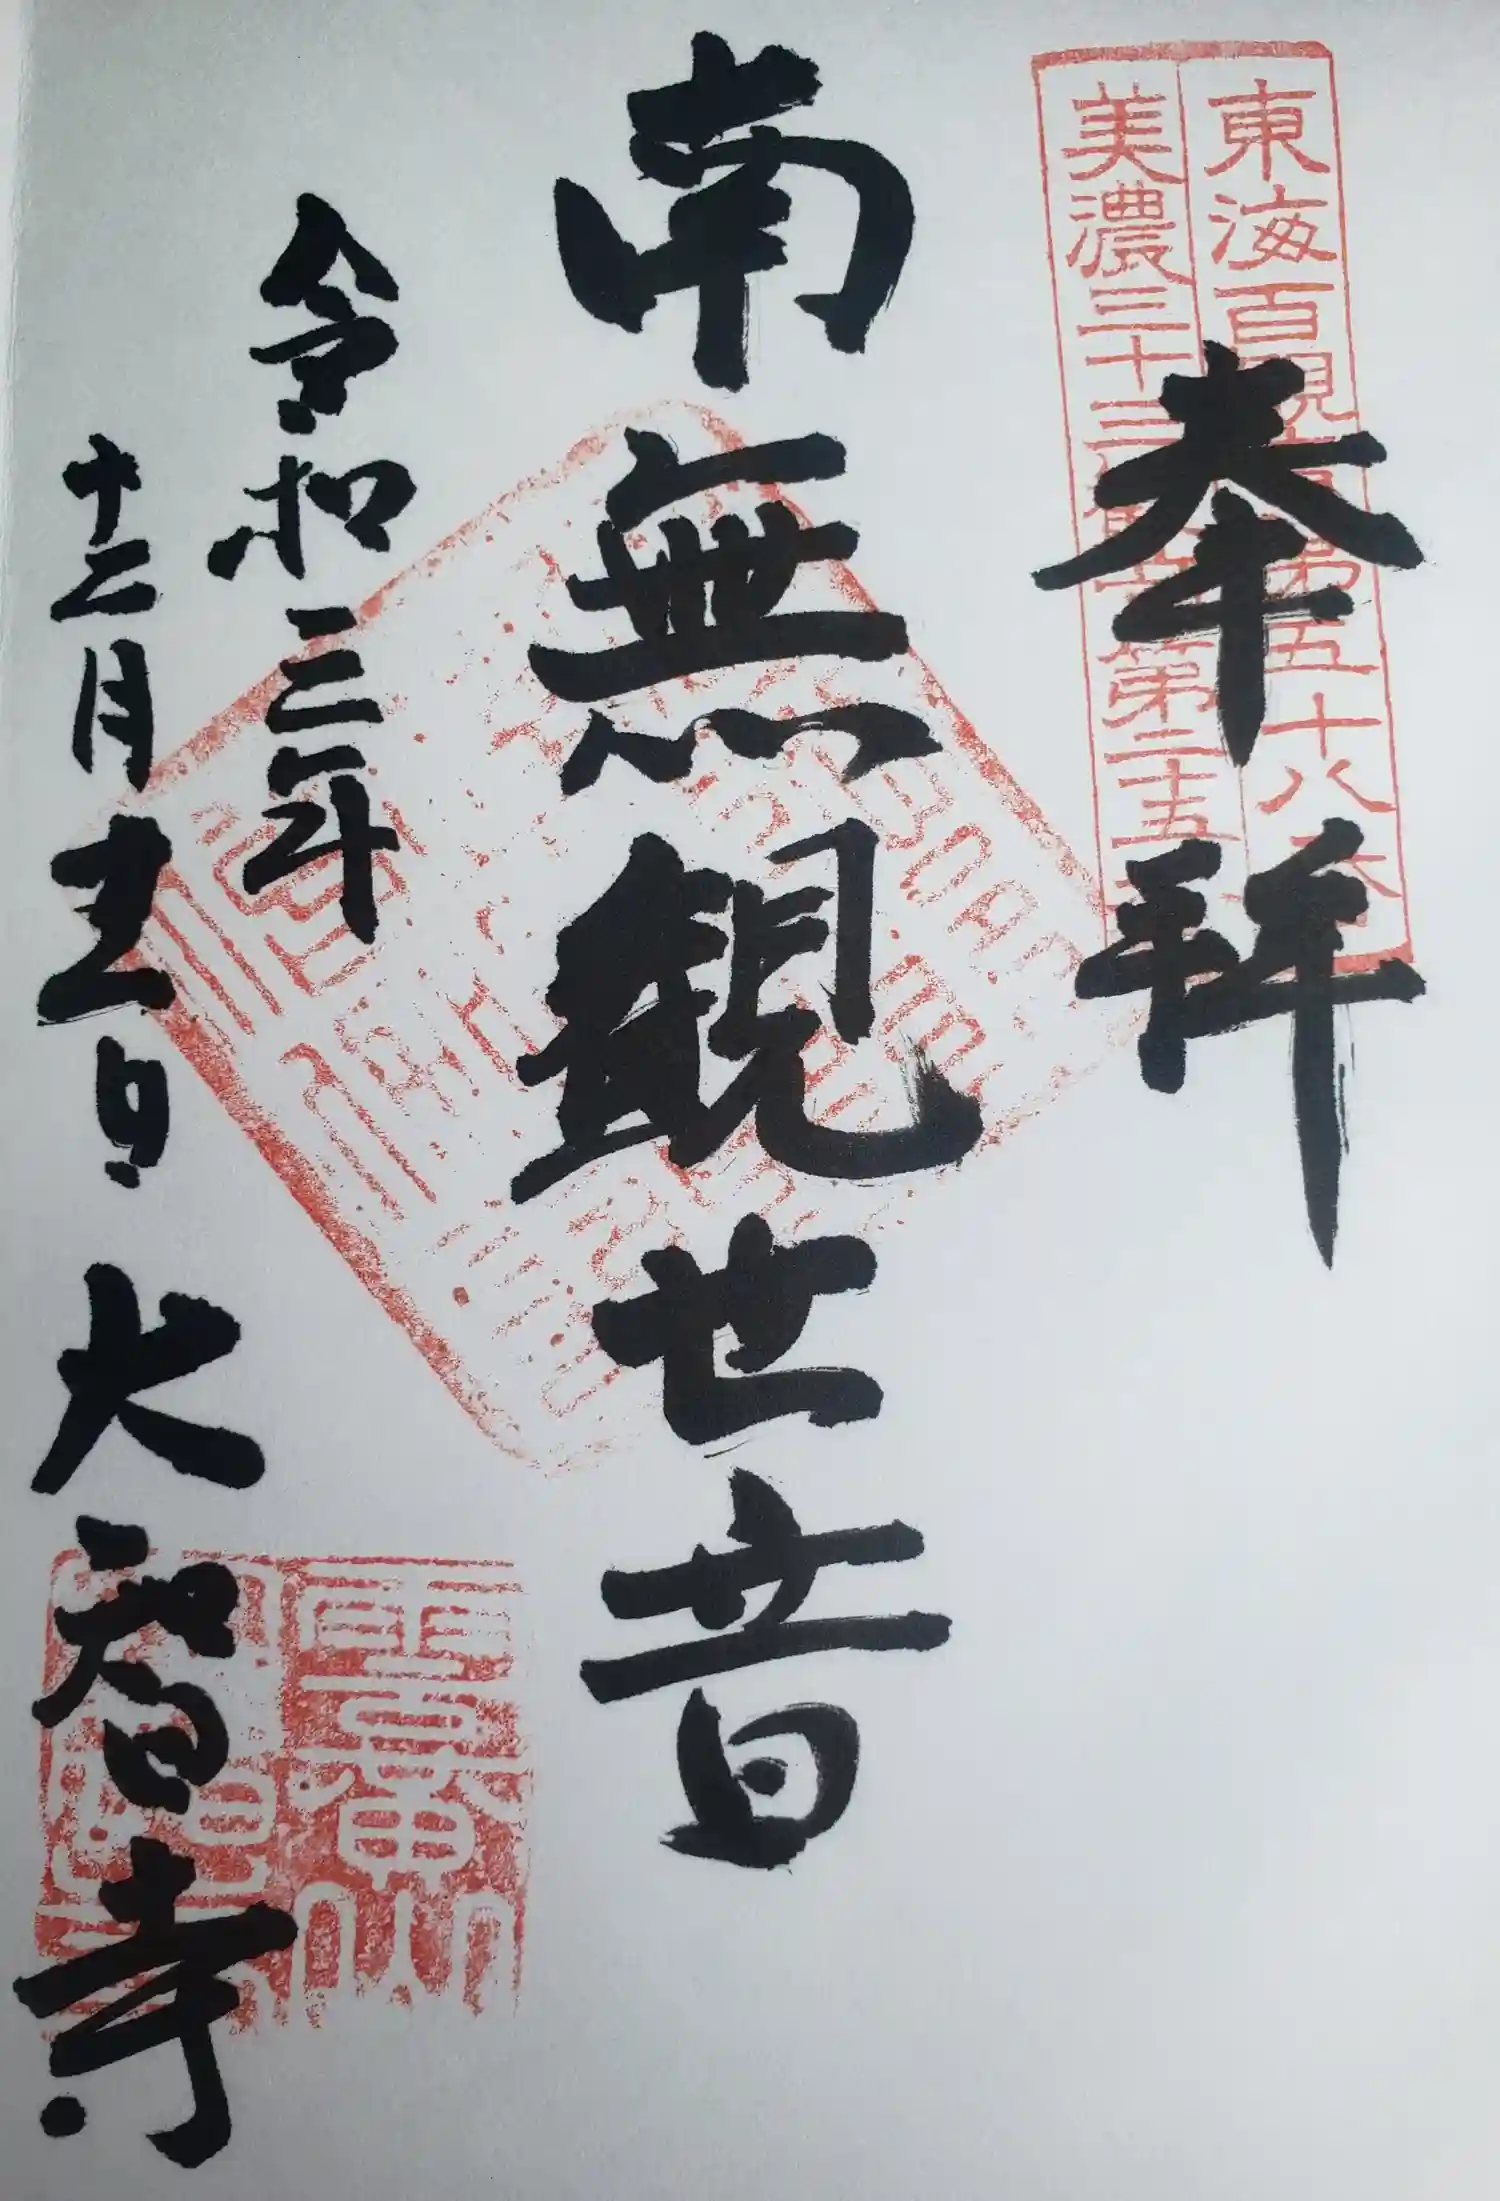 奉拝
東海百観音第五十八番
美濃三十三観音第二十五番
南無観世音
令和三年
十二月十五日
大智寺
雲黄山